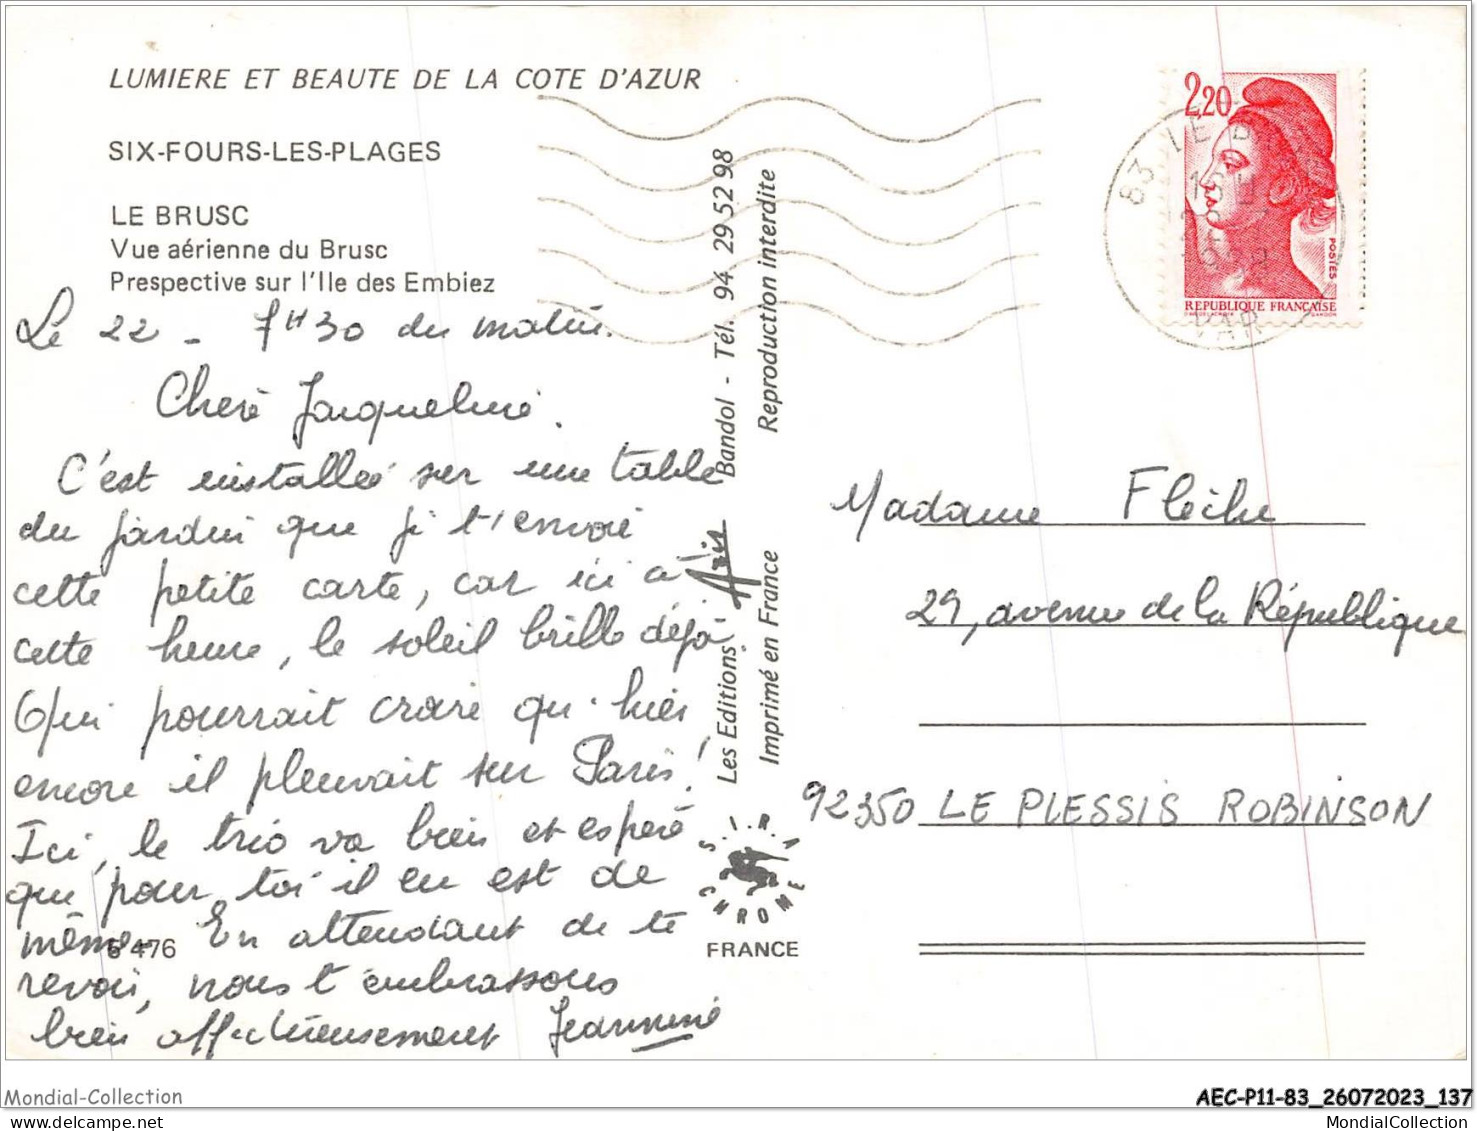 LUMIERE ET BEAUTE DE LA COTE D'AZUR
SIX-FOURS-LES-PLAGES
LE BRUSC
Vue aérienne du Brusc
Prespective sur l'Ile des Embiez
Le 22 - 7H30 du matin.
Chère Jacqueline.
C'est installée sur une table
du jardin que je t'envoie
cette petite carte, car ici à
cette heure, le soleil brille déjà
Qui pourrait croire qu'hier
encore il pleuvait sur Paris!
Ici, le trio va bien et espère
que pour toi il en est de
même. En attendant de te
revoir, nous t'embrassons
bien affectueusement Jeannine
6 476
Les Editions Aris Bandol - Tél. 94 29 52 98
Imprimé en France Reproduction interdite
S.I.R.A.
CHROME
FRANCE
2,20
POSTES
REPUBLIQUE FRANÇAISE
83 LE
VAR
Madame Flèche
29, avenue de la République
92350 LE PLESSIS ROBINSON
Mondial-Collection
AEC-P11-83_26072023_137
MondialCollection